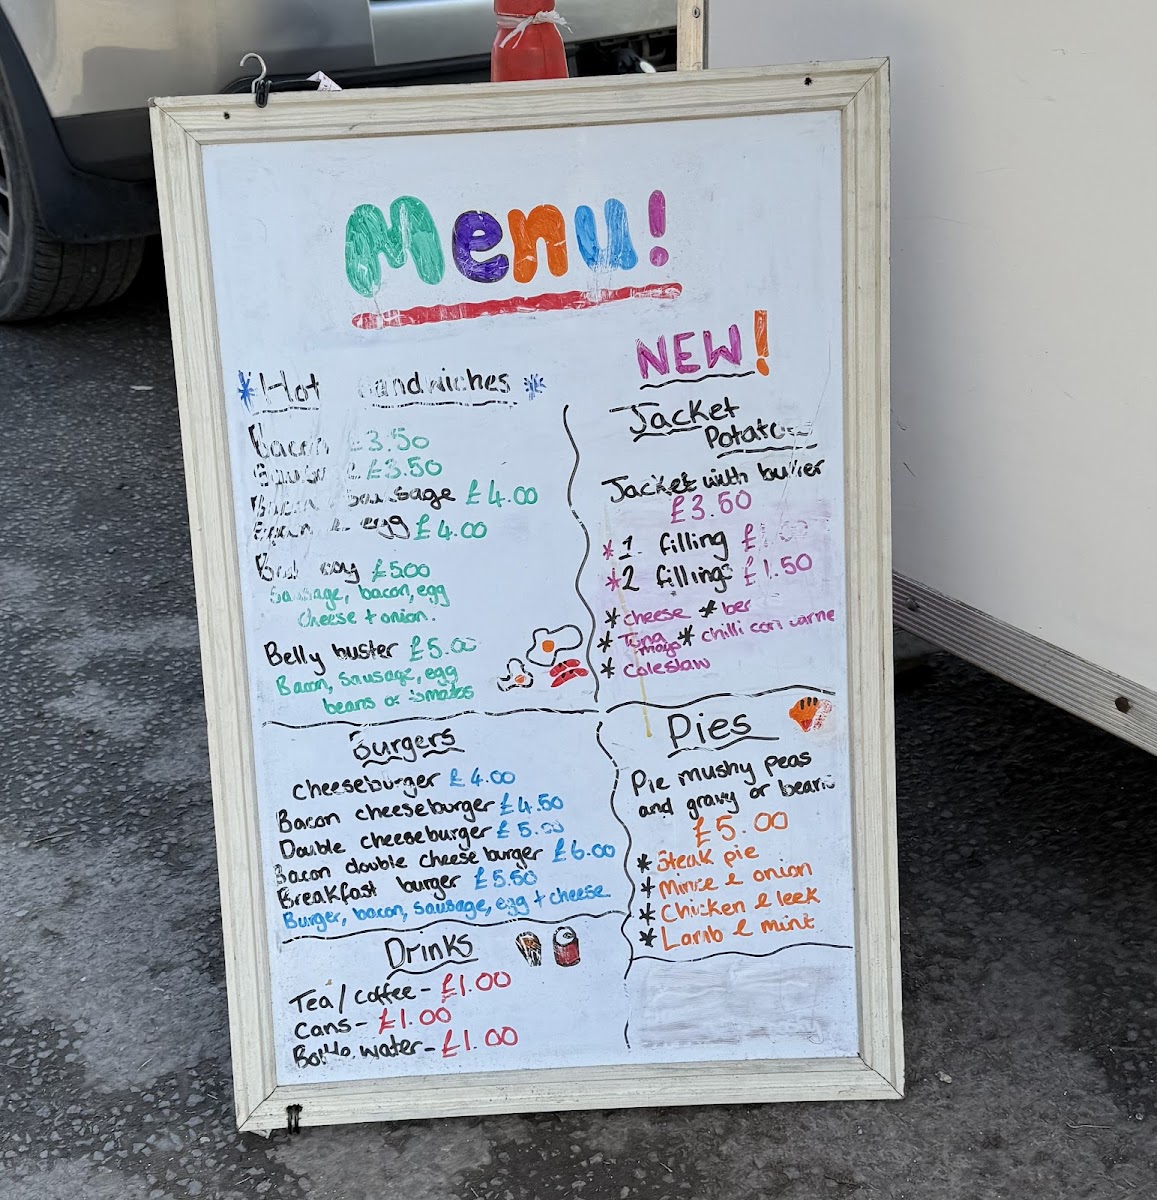 Menu!
*Hot sandwiches*
Bacon £3.50
£3.50
Bacon sausage £4.00
egg £4.00
£5.00
Sausage, bacon, egg
cheese + onion.
Belly buster £5.00
Bacon, sausage, egg
beans or tomatos
NEW!
Jacket
Potato
Jacket with butter
£3.50
*1 filling
*2 fillings £1.50
*cheese *
*Tuna mayo *chilli con carne
*coleslaw
Burgers
cheeseburger £4.00
Bacon cheeseburger £4.50
Double cheeseburger £5.00
Bacon double cheese burger £6.00
Breakfast burger £5.50
Burger, bacon, sausage, egg + cheese
Pies
Pie mushy peas
and gravy or beans
£5.00
*Steak pie
*Mince & onion
*Chicken & leek
*Lamb & mint
Drinks
Tea/coffee - £1.00
Cans - £1.00
Bottle water - £1.00